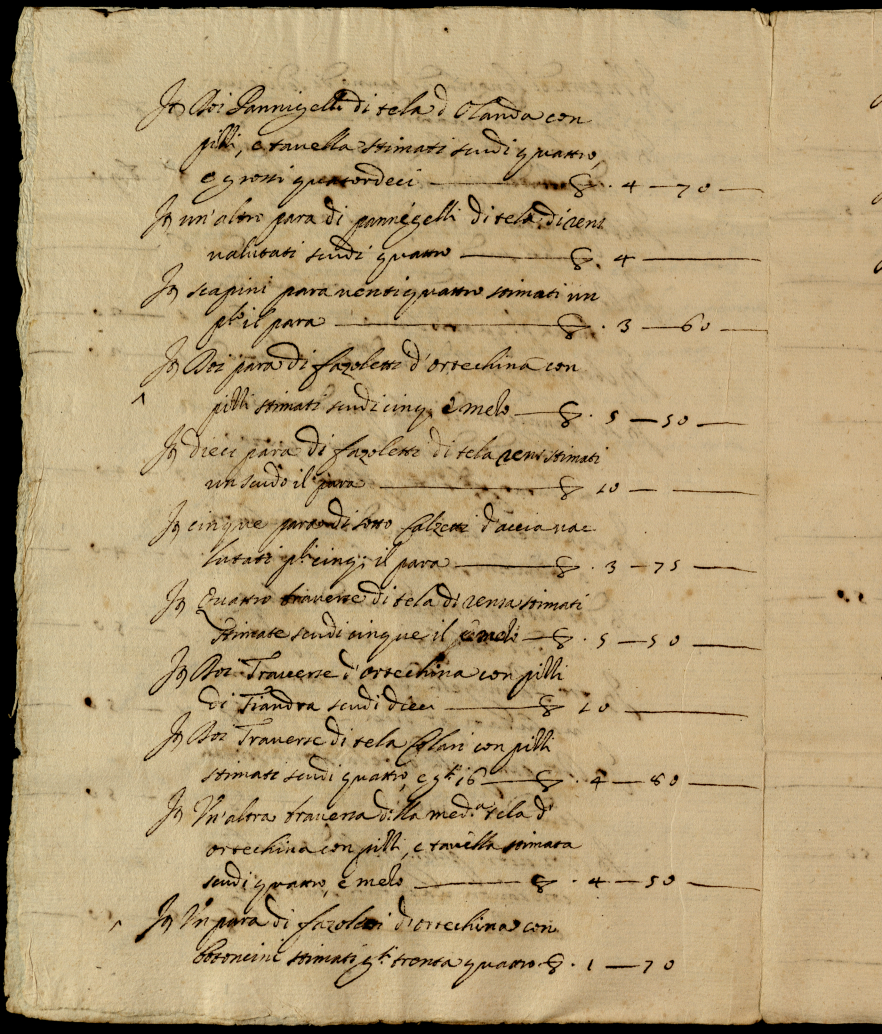 It Doi Pannigelli di tela d'Olanda con
pilli, e tavella stimati scudi quattro,
e grossi quatordeci — 4 — 70 —
It un'altro para di pannigelli di tela di rens
valutati scudi quattro — 4 —
It scapini para ventiquattro stimati un
plo il para — 3 — 60 —
It Doi para di fazoletti d'ortechina con
pilli stimati scudi cinq; e melo — 5 — 50 —
It dieci para di fazoletti di tela rens stimati
un scudo il para — 10 — —
It cinque para di sotto Calzetti d'accia va-
lutati pli cinq; il para — 3 — 75 —
It Quattro traverse di tela di rensa stimati
stimate scudi cinque e melo — 5 — 50 —
It Doi Traverse d'ortechina con pilli
di Fiandra scudi dieci — 10 —
It Doi Traverse di tela Colari con pilli
stimati scudi quattro, e gti 16 — 4 — 80 —
It Un'altra traversa della meda tela d'
ortechina con pilli, e tavella stimata
scudi quattro, e melo — 4 — 50 —
It Un para di fazoletti d'ortechina con
botoncini stimati gti trenta quattro — 1 — 70